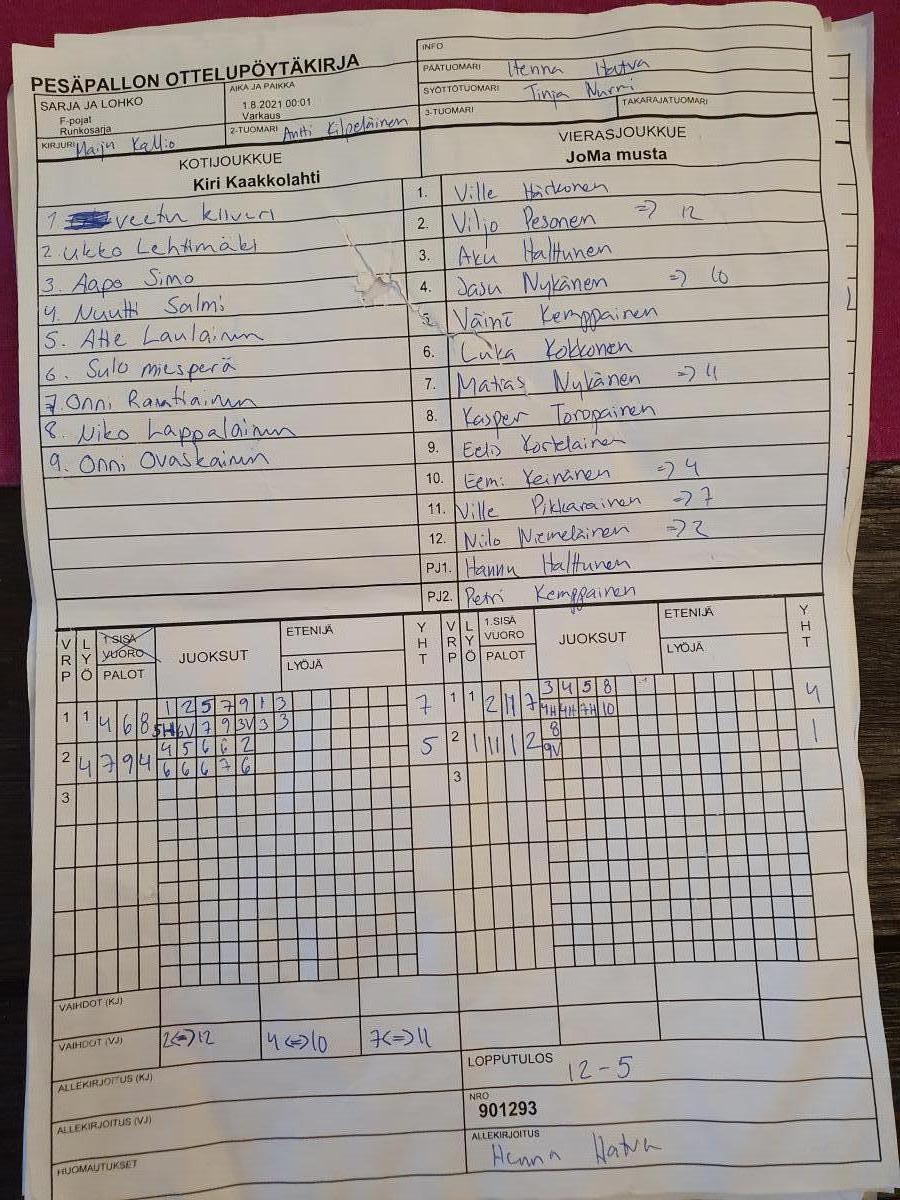 PESÄPALLON OTTELUPÖYTÄKIRJA
INFO
PÄÄTUOMARI Henna Hatva
SYÖTTÖTUOMARI Tinja Nurmi
3-TUOMARI TAKARAJATUOMARI
SARJA JA LOHKO
F-pojat
Runkosarja
AIKA JA PAIKKA
1.8.2021 00:01
Varkaus
KIRJURI Maiju Kallio
2-TUOMARI Antti Kilpeläinen
KOTIJOUKKUE
Kiri Kaakkolahti
VIERASJOUKKUE
JoMa musta
1. veetu kiiveri
2. Ukko Lehtimäki
3. Aapo Simo
4. Nuutti Salmi
5. Atte Laulainen
6. Sulo miesperä
7. Onni Rautiainen
8. Niko Lappalainen
9. Onni Ovaskainen
1. Ville Härkönen
2. Viljo Pesonen => 12
3. Aku Halttunen
4. Jasu Nykänen => 10
5. Väinö Kemppainen
6. Luka Kokkonen
7. Matias Nykänen => 11
8. Kasper Toropainen
9. Eelis Kostelainen
10. Eemi Keinänen => 4
11. Ville Pikkarainen => 7
12. Nilo Niemeläinen => 2
PJ1. Hannu Halttunen
PJ2. Petri Kemppainen
VRP LYÖ 1.SISÄ VUORO PALOT JUOKSUT ETENIJÄ LYÖJÄ YHT
VRP LYÖ 1.SISÄ VUORO PALOT JUOKSUT ETENIJÄ LYÖJÄ YHT
1 2 5 7 9 1 3
1 1 4 6 8 5H 6V 7 9 3V 3 3 7
4 5 6 6 2
2 4 7 9 4 6 6 6 7 6 5
3
3 4 5 8
1 1 2 11 7 4H 4H 7H 10 4
8
2 1 11 1 2 9V 1
3
VAIHDOT (KJ)
VAIHDOT (VJ) 2<=>12 4<=>10 7<=>11
ALLEKIRJOITUS (KJ)
ALLEKIRJOITUS (VJ)
HUOMAUTUKSET
LOPPUTULOS
12-5
NRO
901293
ALLEKIRJOITUS
Henna Hatva